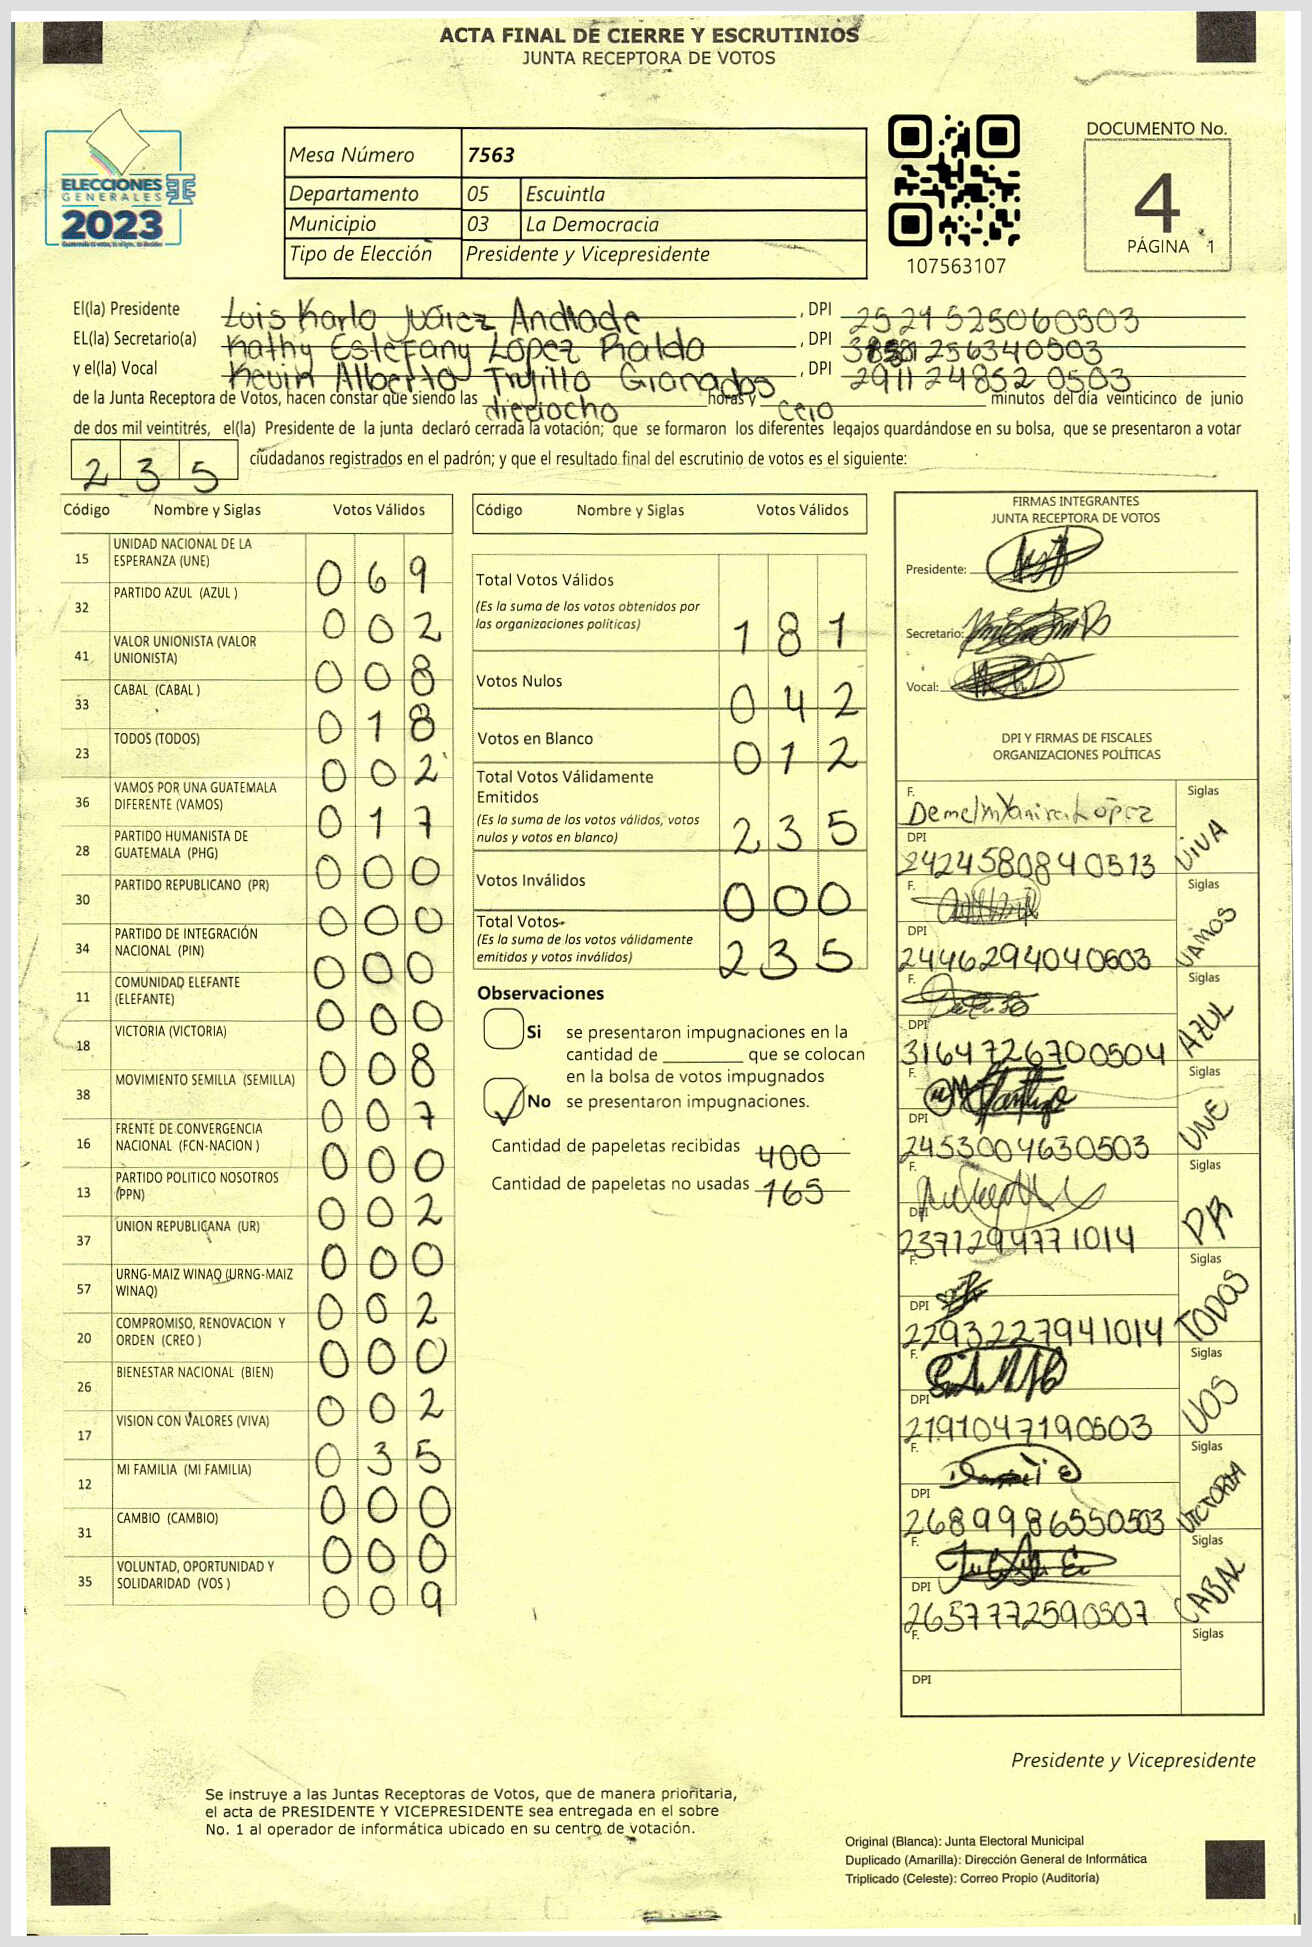 ACTA FINAL DE CIERRE Y ESCRUTINIOS
JUNTA RECEPTORA DE VOTOS
ELECCIONES
GENERALES
2023
Mesa Número 7563
Departamento 05 Escuintla
Municipio 03 La Democracia
Tipo de Elección Presidente y Vicepresidente
107563107
DOCUMENTO No.
4
PÁGINA 1
El(la) Presidente Luis Karlo Juárez Andrade, DPI 2521525060503
EL(la) Secretario(a) Kathy Estefany López Raldo, DPI 256340503
y el(la) Vocal Kevin Alberto Trujillo Granados, DPI 2911248520503
de la Junta Receptora de Votos, hacen constar que siendo las dieciocho horas y cero minutos del día veinticinco de junio
de dos mil veintitrés, el(la) Presidente de la junta declaró cerrada la votación; que se formaron los diferentes legajos guardándose en su bolsa, que se presentaron a votar
2 3 5 ciudadanos registrados en el padrón; y que el resultado final del escrutinio de votos es el siguiente:
Código Nombre y Siglas Votos Válidos
15 UNIDAD NACIONAL DE LA ESPERANZA (UNE) 0 6 9
32 PARTIDO AZUL (AZUL ) 0 0 2
41 VALOR UNIONISTA (VALOR UNIONISTA) 0 0 8
33 CABAL (CABAL ) 0 1 8
23 TODOS (TODOS) 0 0 2
36 VAMOS POR UNA GUATEMALA DIFERENTE (VAMOS) 0 1 7
28 PARTIDO HUMANISTA DE GUATEMALA (PHG) 0 0 0
30 PARTIDO REPUBLICANO (PR) 0 0 0
34 PARTIDO DE INTEGRACIÓN NACIONAL (PIN) 0 0 0
11 COMUNIDAD ELEFANTE (ELEFANTE) 0 0 0
18 VICTORIA (VICTORIA) 0 0 8
38 MOVIMIENTO SEMILLA (SEMILLA) 0 0 7
16 FRENTE DE CONVERGENCIA NACIONAL (FCN-NACION ) 0 0 0
13 PARTIDO POLITICO NOSOTROS (PPN) 0 0 2
37 UNION REPUBLICANA (UR) 0 0 0
57 URNG-MAIZ WINAQ (URNG-MAIZ WINAQ) 0 0 2
20 COMPROMISO, RENOVACION Y ORDEN (CREO ) 0 0 0
26 BIENESTAR NACIONAL (BIEN) 0 0 2
17 VISION CON VALORES (VIVA) 0 3 5
12 MI FAMILIA (MI FAMILIA) 0 0 0
31 CAMBIO (CAMBIO) 0 0 0
35 VOLUNTAD, OPORTUNIDAD Y SOLIDARIDAD (VOS ) 0 0 9
Código Nombre y Siglas Votos Válidos
Total Votos Válidos 1 8 1
(Es la suma de los votos obtenidos por
las organizaciones políticas)
Votos Nulos 0 4 2
Votos en Blanco 0 1 2
Total Votos Válidamente
Emitidos 2 3 5
(Es la suma de los votos válidos, votos
nulos y votos en blanco)
Votos Inválidos 0 0 0
Total Votos 2 3 5
(Es la suma de los votos válidamente
emitidos y votos inválidos)
Observaciones
Si se presentaron impugnaciones en la
cantidad de ________ que se colocan
en la bolsa de votos impugnados
No se presentaron impugnaciones.
Cantidad de papeletas recibidas 400
Cantidad de papeletas no usadas 165
FIRMAS INTEGRANTES
JUNTA RECEPTORA DE VOTOS
Presidente:
Secretario:
Vocal:
DPI Y FIRMAS DE FISCALES
ORGANIZACIONES POLÍTICAS
F. López Siglas
DPI 2424580840513 VIVA
F. Siglas
DPI 2446294040603 VAMOS
F. Siglas
DPI 3164726700504 AZUL
F. Siglas
DPI 2453004630503 UNE
F. Siglas
DPI 2371294771014 PR
F. Siglas
DPI 2293227941014 TODOS
F. Siglas
DPI 2191047190503 VOS
F. Siglas
DPI 2689986550503 VICTORIA
F. Siglas
DPI 2657772590507 CABAL
F. Siglas
DPI
Presidente y Vicepresidente
Se instruye a las Juntas Receptoras de Votos, que de manera prioritaria,
el acta de PRESIDENTE Y VICEPRESIDENTE sea entregada en el sobre
No. 1 al operador de informática ubicado en su centro de votación.
Original (Blanca): Junta Electoral Municipal
Duplicado (Amarilla): Dirección General de Informática
Triplicado (Celeste): Correo Propio (Auditoría)